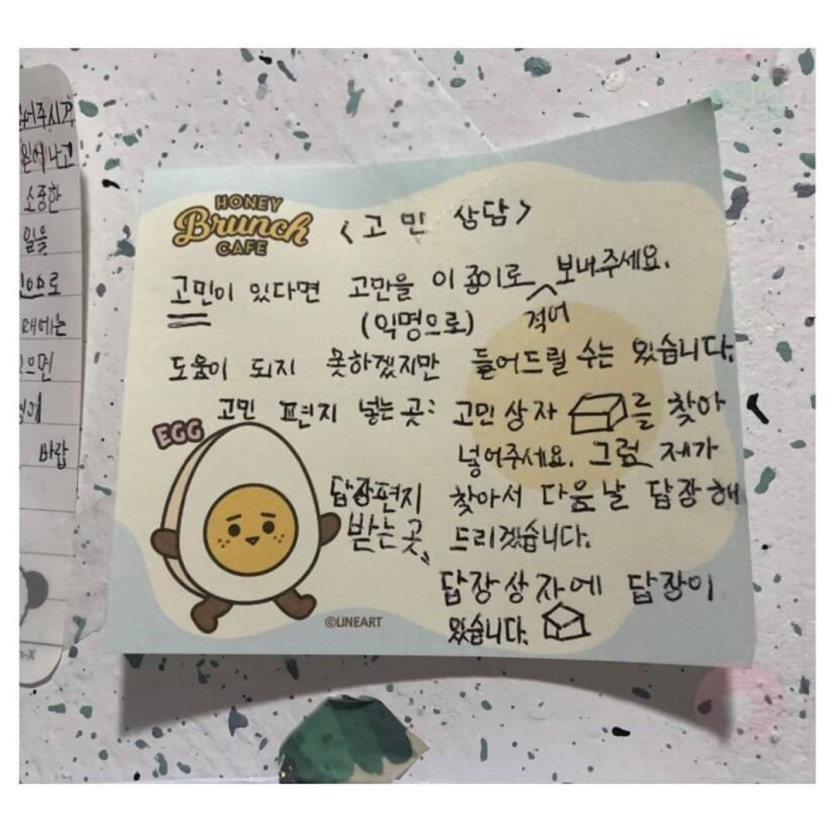 어주시기
소중한
일을
으로
때에는
으면
바랍
HONEY
Brunch
CAFE
<고민 상담>
고민이 있다면 고만을 이 종이로 적어 보내주세요.
(익명으로)
도움이 되지 못하겠지만 들어드릴 수는 있습니다.
고민 편지 넣는 곳: 고민상자를 찾아
넣어주세요. 그럼 제가
EGG
답장편지 찾아서 다음날 답장해
받는 곳 드리겠습니다.
답장상자에 답장이
있습니다.
©LINEART